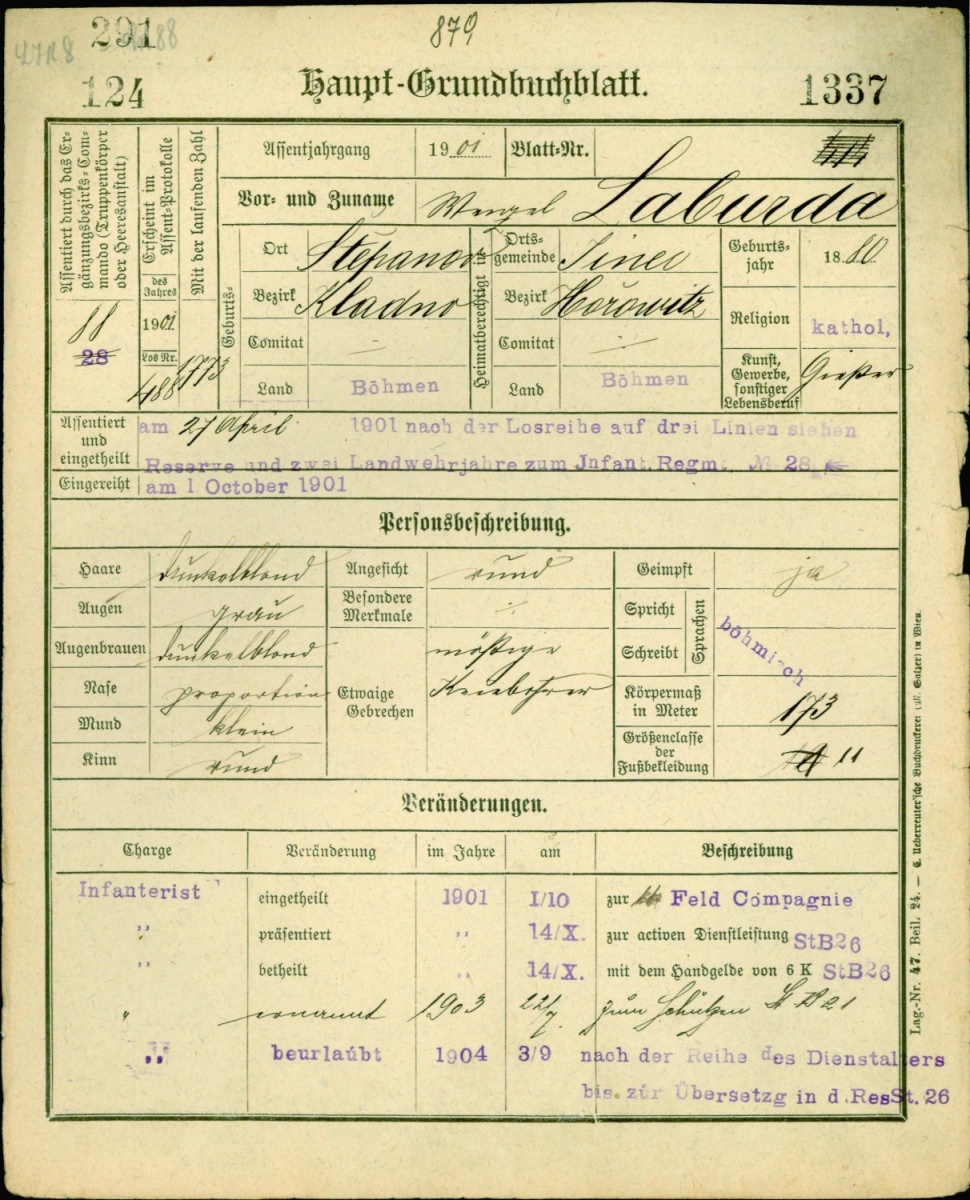 291
879
124
Haupt-Grundbuchblatt.
1337
Assentiert durch das Ergänzungsbezirks-Commando (Truppenkörper oder Heeresanstalt)
88
28
Erscheint im Assent-Protokolle
des Jahres
1901
Los Nr.
488
Mit der laufenden Zahl
1773
Assentjahrgang 1901 Blatt-Nr.
Vor- und Zuname Wenzel Laburda
Geburts-
Ort Stěpanov
Bezirk Kladno
Comitat ÷
Land Böhmen
Heimatberechtigt in
Ortsgemeinde Jinec
Bezirk Hořowitz
Comitat ÷
Land Böhmen
Geburtsjahr 1880
Religion kathol,
Kunst, Gewerbe, sonstiger Lebensberuf Gießer
Assentiert und eingetheilt
am 27 April 1901 nach der Losreihe auf drei Linien sieben
Reserve und zwei Landwehrjahre zum Jnfant. Regmt. № 28
Eingereiht am 1. October 1901
Personsbeschreibung.
Haare dunkelblond
Augen grau
Augenbrauen dunkelblond
Nase proportion
Mund klein
Kinn rund
Angesicht rund
Besondere Merkmale ÷
Etwaige Gebrechen
mäßige
Kniebohrer
Geimpft ja
Spricht
Schreibt
Sprachen
böhmisch
Körpermaß in Meter 173
Größenclasse der Fußbekleidung 11
Veränderungen.
Charge Veränderung im Jahre am Beschreibung
Infanterist eingetheilt 1901 1/10 zur Feld Compagnie
,, präsentiert ,, 14/X. zur activen Dienstleistung StB26
,, betheilt ,, 14/X. mit dem Handgelde von 6 K StB26
" ernannt 1903 22/7. zum Schützen St B 21
,, beurlaubt 1904 3/9 nach der Reihe des Dienstalters
bis zur Übersetzg in d. Res St. 26
Lag.-Nr. 47. Beil. 24. — C. Ueberreuter'sche Buchdruckerei (M. Salzer) in Wien.